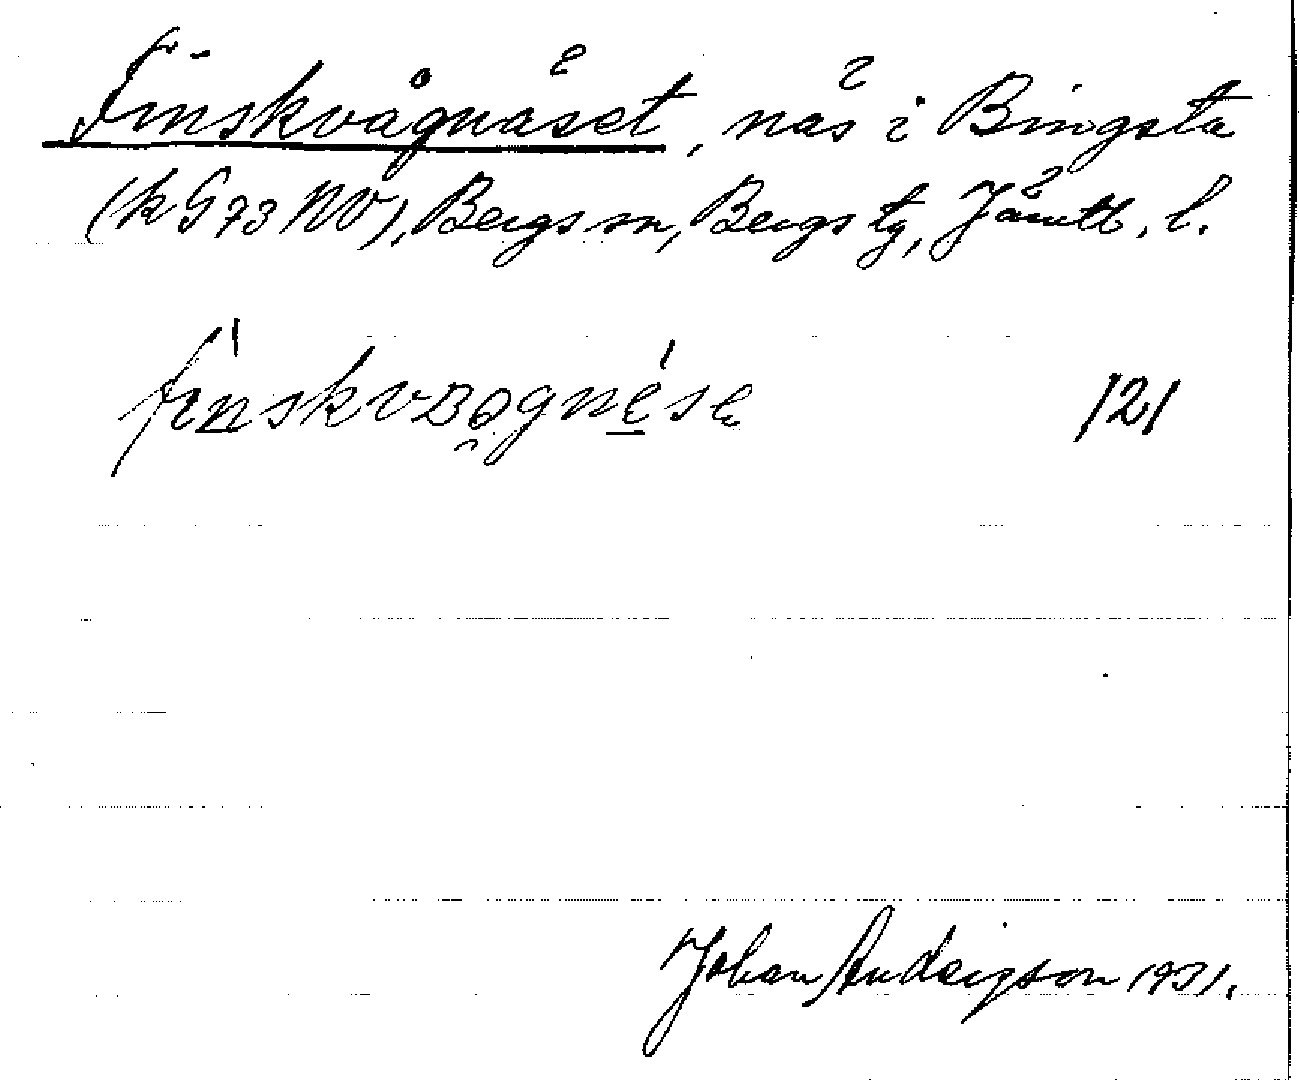 Finskvågnäset, näs i Bingsta
(k G 73 NV), Bergs sn, Bergs tg, Jämtl. l.
121
Johan Andersson 1931.